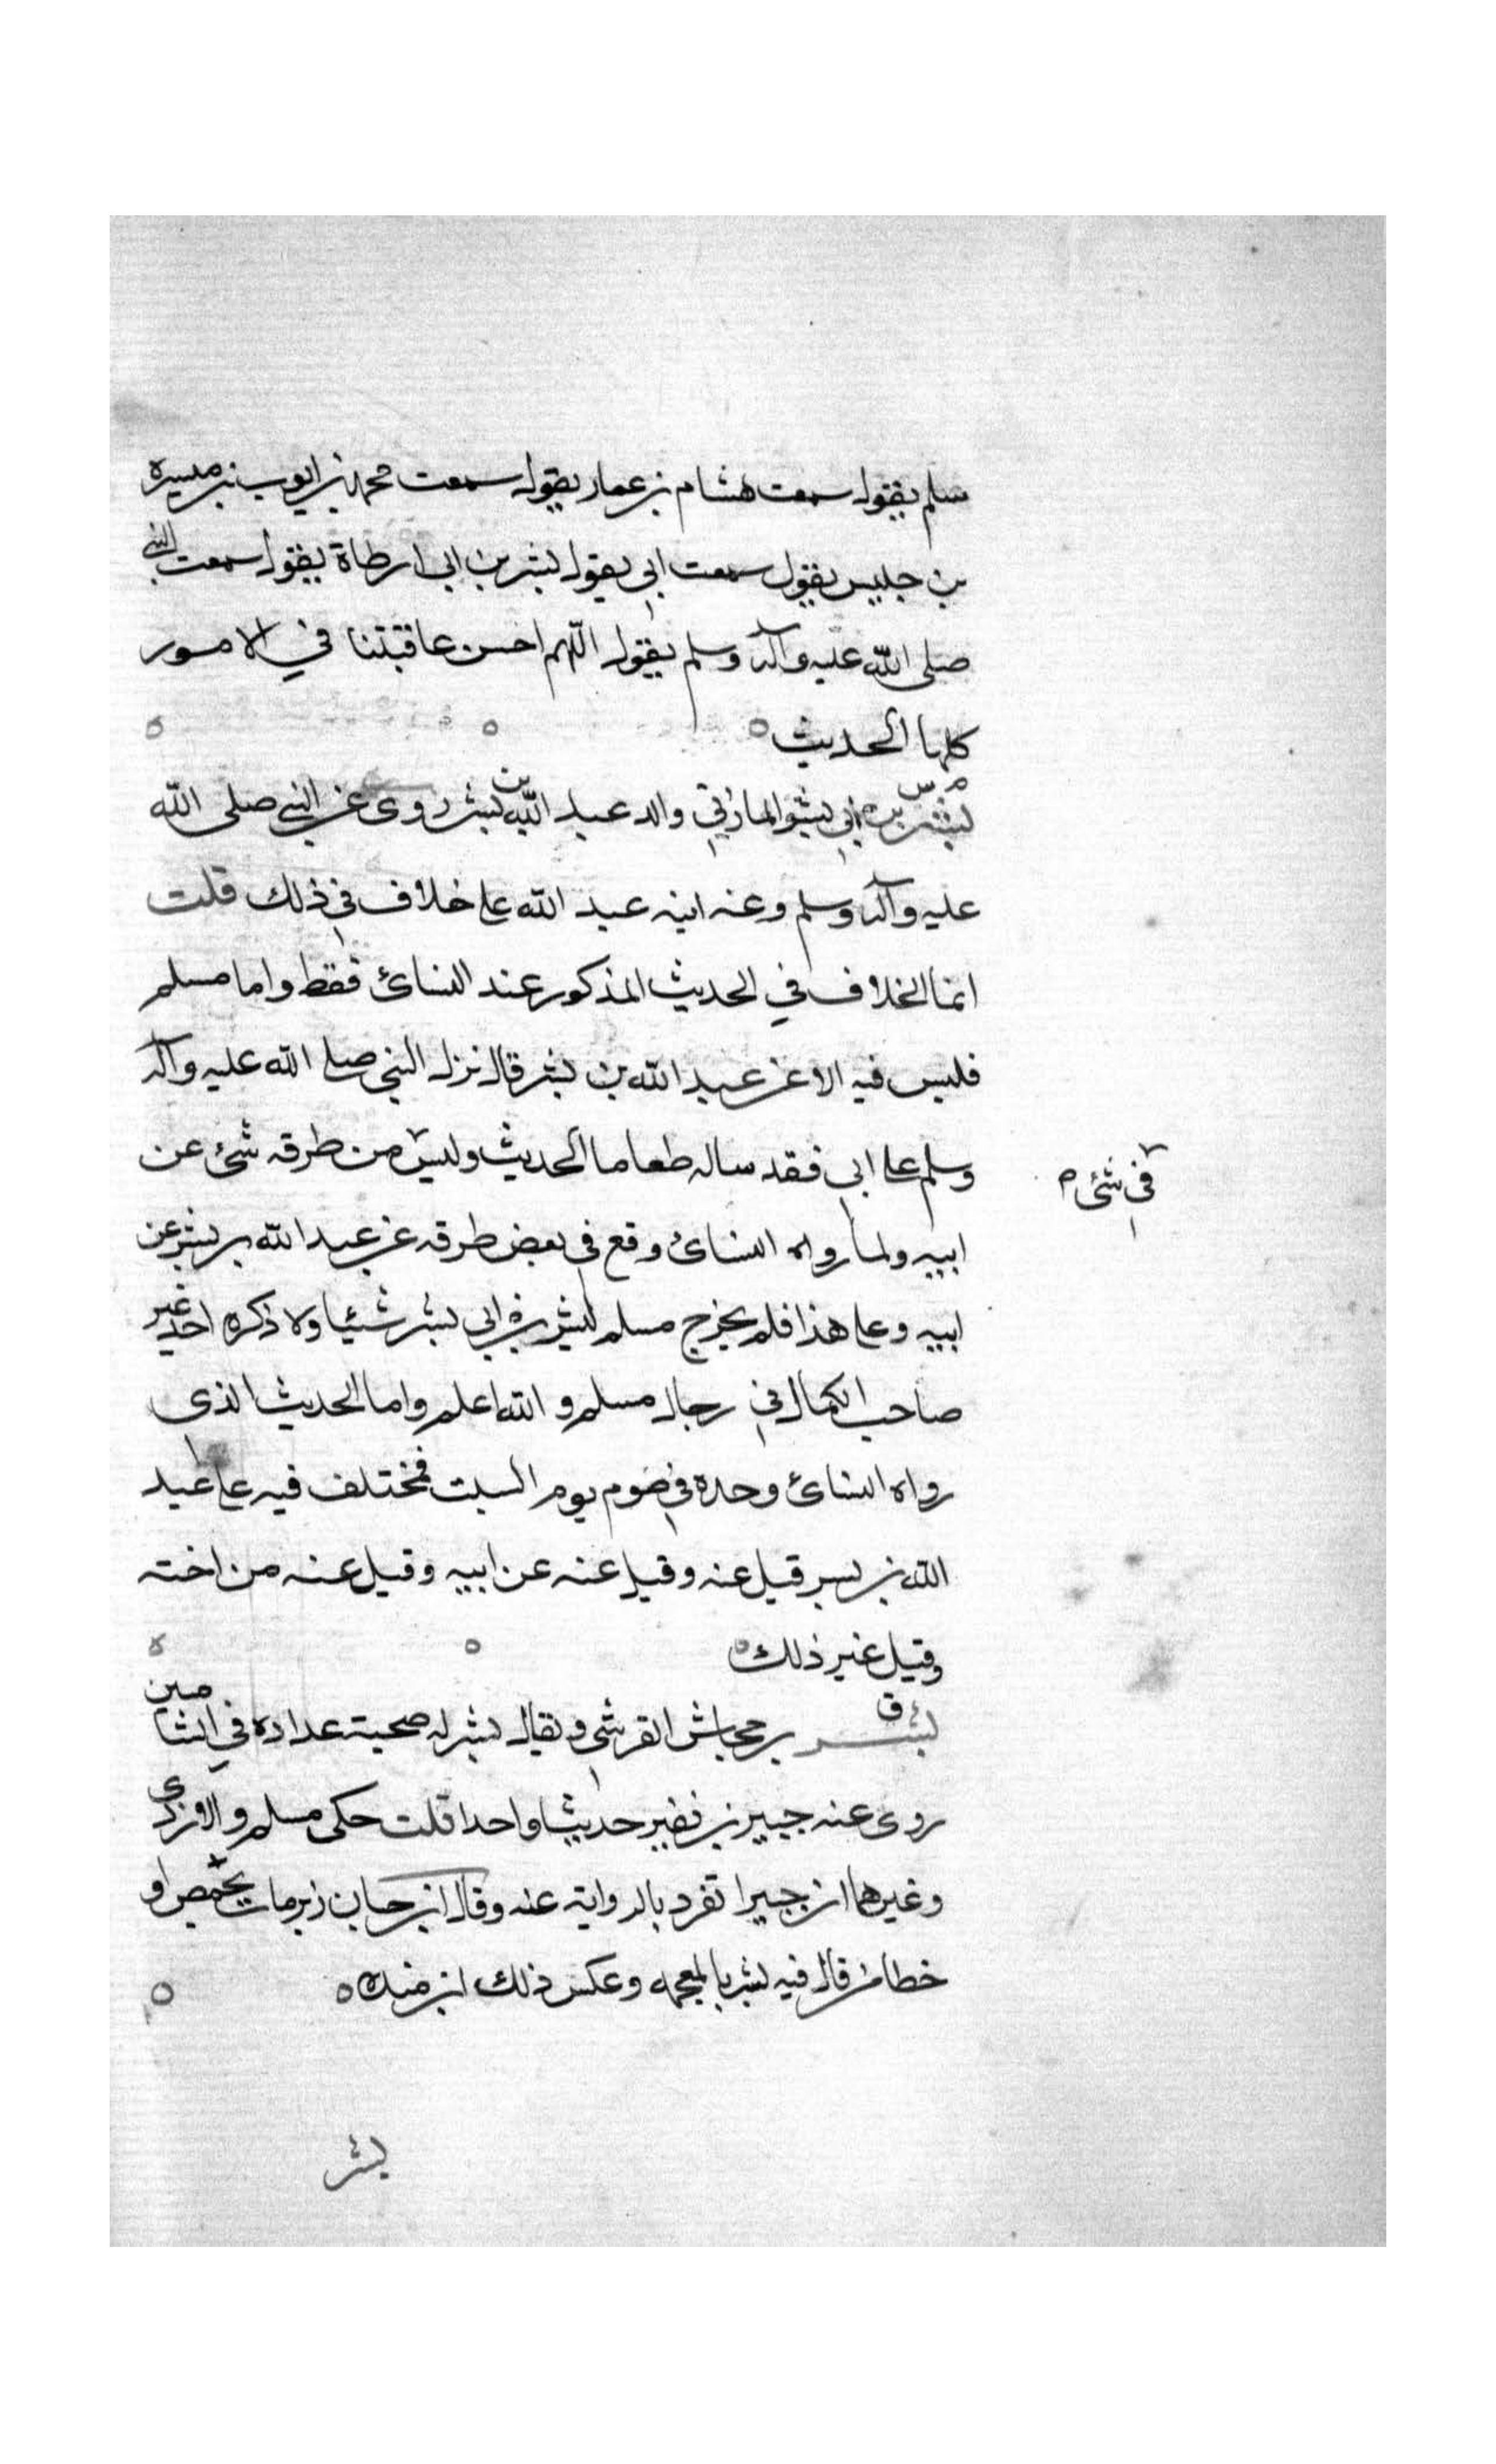 سلم يقول سمعت هشام بن عمار يقول سمعت محمد بن ايوب بن ميسرة
بن جليس يقول سمعت ابي يقول بشر بن ابي ارطاة يقول سمعت النبي
صلى الله عليه وآله وسلم يقول اللهم احسن عاقبتنا في الامور
كلها الحديث ه ه ه
م س
بشر بن ابي بشر المازني والد عبد الله بن بشر روى عن النبي صلى الله
عليه وآله وسلم وعنه ابنه عبد الله على خلاف في ذلك قلت
انما الخلاف في الحديث المذكور عند النسائ فقط واما مسلم
فليس فيه الا عن عبد الله بن بشر قال نزل النبي صلى الله عليه وآله
وسلم على ابي فقد ساله طعاما الحديث وليس من طرقه شئ عن
في شئ م
ابيه ولما رواه النسائ وقع في بعض طرقه عن عبد الله بن بشر عن
ابيه وعلى هذا فلم يخرج مسلم لبشر بن ابي بشر شئيا ولا ذكره احد غير
صاحب الكمال في رجال مسلم والله اعلم واما الحديث الذى
رواه النسائ وحده في صوم يوم السبت فمختلف فيه على عبد
الله بن بسر قيل عنه وقيل عنه عن ابيه وقيل عنه من اخته
وقيل غير ذلك ه ه ه
ق
بشر بن جحاش القرشي ويقال بشر له صحبة عداده في الشاميين
روى عنه جبير بن نفير حديثا واحدا قلت حكى مسلم والازدى
وغيرهما ان جبيرا تفرد بالرواية عنه وقال ابن حبان مات بحمص او
خطا من قال فيه بشر بالمعجمه وعكس ذلك ابن منده ه ه
بشر